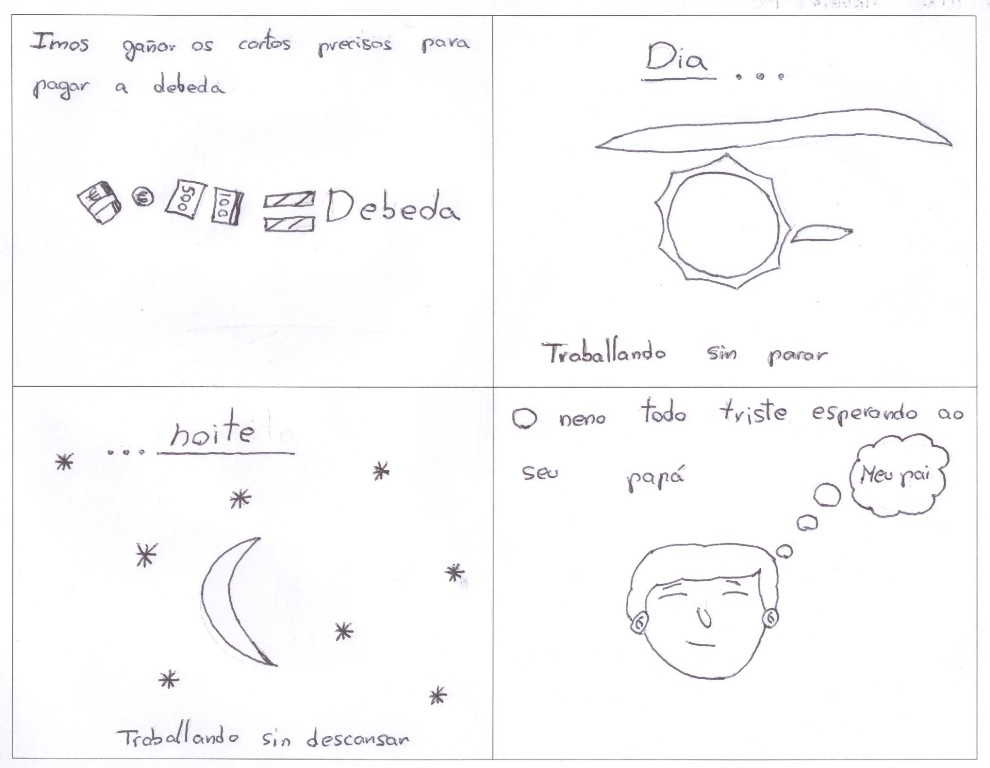 Imos gañar os cartos precisos para
pagar a débeda
€ € 500 100 = Debeda
Dia ...
Traballando sin parar
... noite
Traballando sin descansar
O neno todo triste esperando ao
seu papá
Meu pai